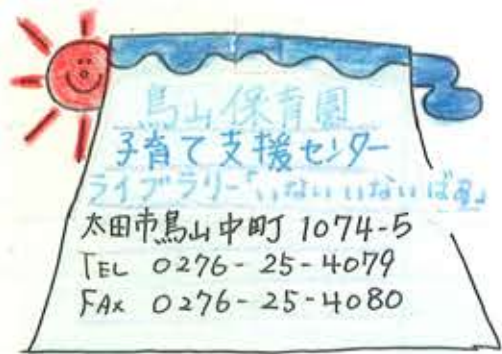 鳥山保育園
子育て支援センター
ライブラリー「いないいないばあ」
太田市鳥山中町 1074-5
TEL 0276-25-4079
FAX 0276-25-4080